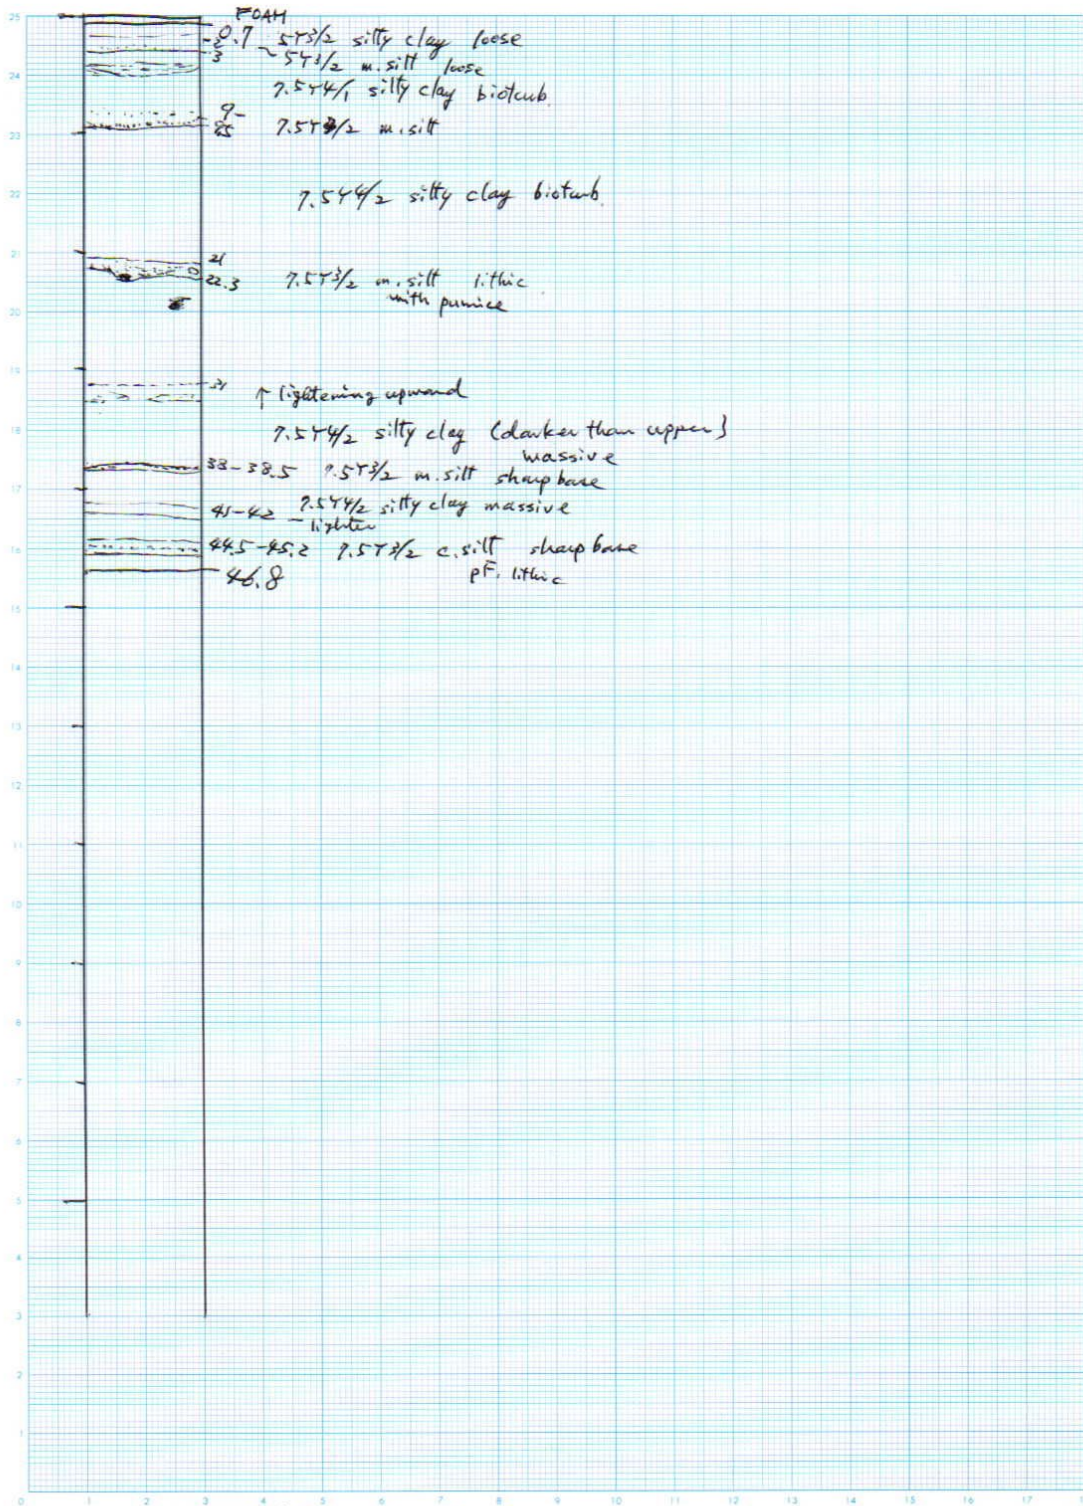 FOAM
0.7 5Y3/2 silty clay loose
2
3 ~ 5Y3/2 m.silt loose
7.5Y4/1 silty clay bioturb.
9-
7.5Y3/2 m.silt
7.5Y4/2 silty clay bioturb.
21
22.3 7.5Y3/2 m.silt lithic
with pumice
31
↑ lightening upward
7.5Y4/2 silty clay (darker than upper)
massive
38-38.5 7.5Y3/2 m.silt sharp base
41-42 7.5Y4/2 silty clay massive
- lighter
44.5-45.2 7.5Y3/2 c.silt sharp base
pF. lithic
46.8
25
24
23
22
21
20
19
18
17
16
15
14
13
12
11
10
9
8
7
6
5
4
3
2
1
0 1 2 3 4 5 6 7 8 9 10 11 12 13 14 15 16 17